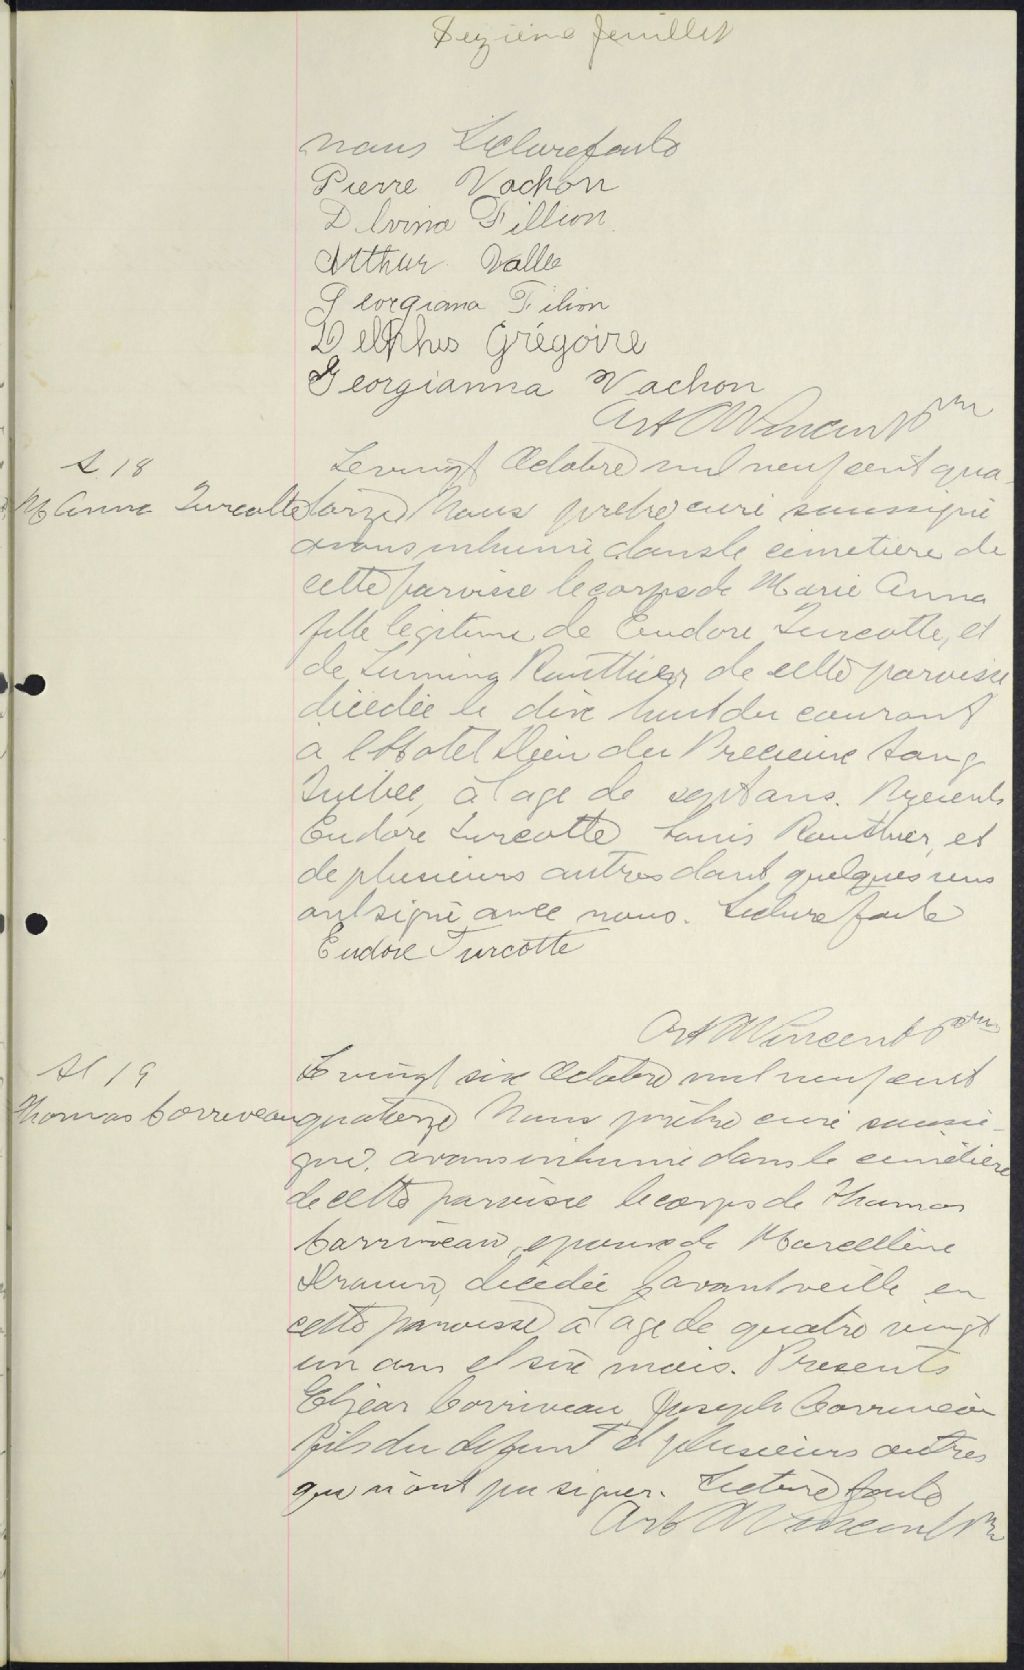 Dezième feuillet
nous Lecture faite
Pierre Vachon
Dlvina Fillion
Arthur Vallee
Georgiana Filion
Delphis Grégoire
Georgianna Vachon
Art Vincent ptre
S. 18
M Anna Turcotte
Le vingt Octobre mil neuf cent qua-
torze Nous prêtre curé soussigné
avons inhumé dans le cimetière de
cette paroisse le corps de Marie Anna
fille légitime de Eudore Turcotte, et
de Rauthier de cette paroisse
décédée le dix huit du courant
à l'Hotel Dieu du Precieux Sang
Québec, à l'age de sept ans. Présents
Eudore Turcotte Louis Rauthier, et
de plusieurs autres dont quelques uns
ont signé avec nous. Lecture faite
Eudore Turcotte
Art Vincent ptre
S. 19
Thomas Corriveau
Le vingt six Octobre mil neuf cent
quatorze Nous prêtre curé soussi-
gné, avons inhumé dans le cimétière
de cette paroisse le corps de Thomas
Corriveau, epoux de Marcelline
décédée l'avant veille en
cette paroisse à l'age de quatre vingt
un ans et six mois. Presents
Elzéar Corriveau Joseph Corriveau
fils du defunt et plusieurs autres
qui n'ont pu signer. Lecture faite
Art Vincent ptre